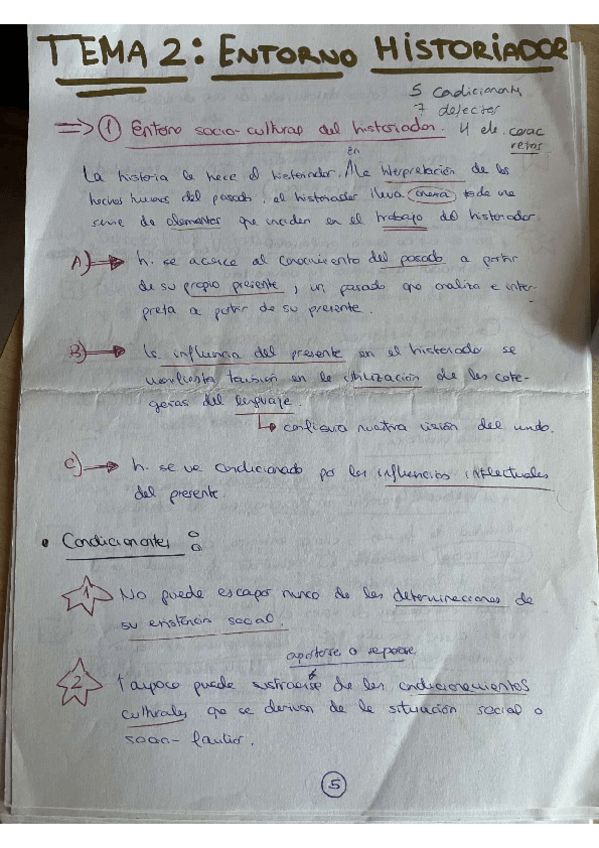 TEMA 2: ENTORNO HISTORIADOR
5 Condicionantes
7 defectos
4 ele. carac
retos
=> ① Entorno socio-cultural del historiador.
La historia la hace el historiador. En la interpretación de los
hechos humanos del pasado, el historiador lleva toda una
serie de elementos que inciden en el trabajo del historiador.
A) → h. se acerca al conocimiento del pasado a partir
de su propio presente, un pasado que analiza e inter-
preta a partir de su presente.
B) → La influencia del presente en el historiador se
manifiesta también en la utilización de las cate-
gorías del lenguaje.
↳ configura nuestra visión del mundo.
C) → h. se ve condicionado por las influencias intelectuales
del presente.
• Condicionantes:
1 No puede escapar nunca de las determinaciones de
su existencia social.
apartarse o separarse
2 tampoco puede sustraerse de los condicionamientos
culturales que se derivan de la situación social o
5